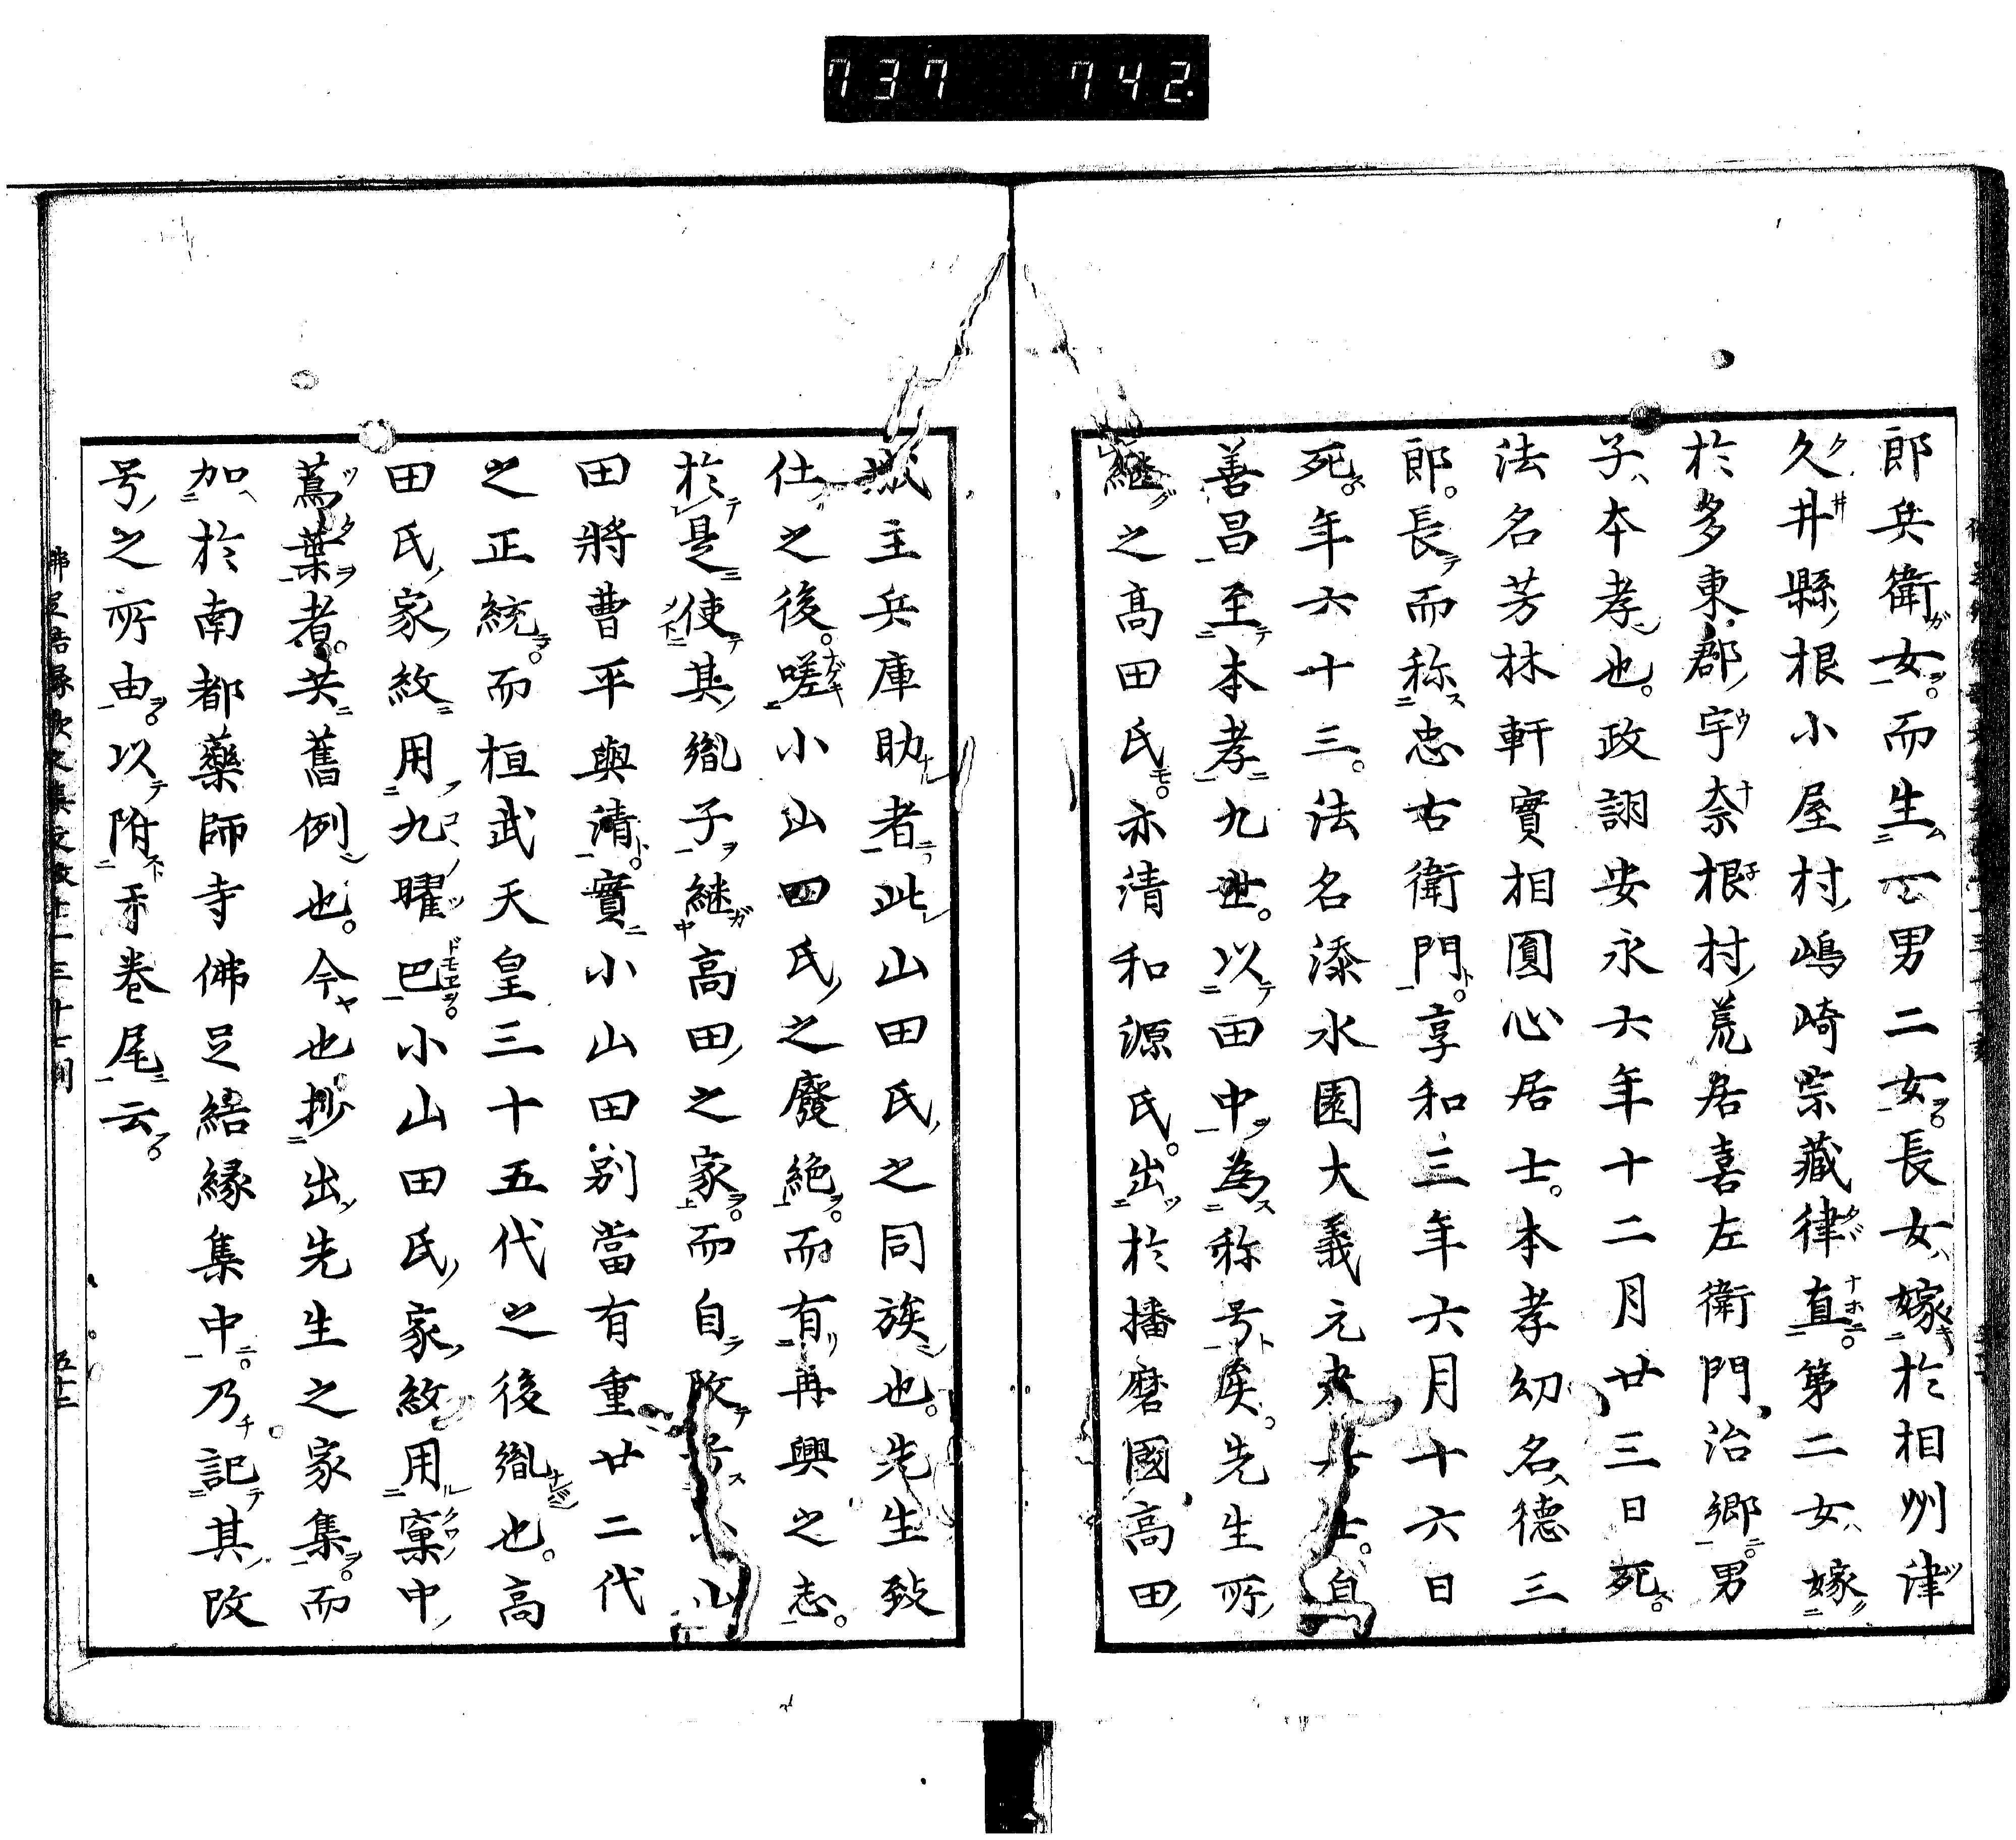 737 742
郎兵衛女而生一男二女長女嫁於相州津
久井縣根小屋村嶋崎宗藏律直第二女嫁
於多東郡宇奈根村荒居喜左衛門治郷男
子本孝也政詡安永六年十二月廿三日死
法名芳林軒實相圓心居士本孝幼名德三
郎長而称忠右衛門享和三年六月十六日
死年六十三法名添水園大義元 士自
善昌至本孝九世以田中為称号矣先生所
継之高田氏亦清和源氏出於播磨國高田
城主兵庫助者此山田氏之同族也先生致
仕之後嗟小山田氏之廢絶而有再興之志
於是使其胤子継高田之家而自改号小山
田將曹平與清實小山田別當有重廿二代
之正統而桓武天皇三十五代之後胤也高
田氏家紋用九曜巴小山田氏家紋用窠中
蔦葉者共舊例也今也抄出先生之家集而
加於南都藥師寺佛足結縁集中乃記其改
号之所由以附于卷尾云